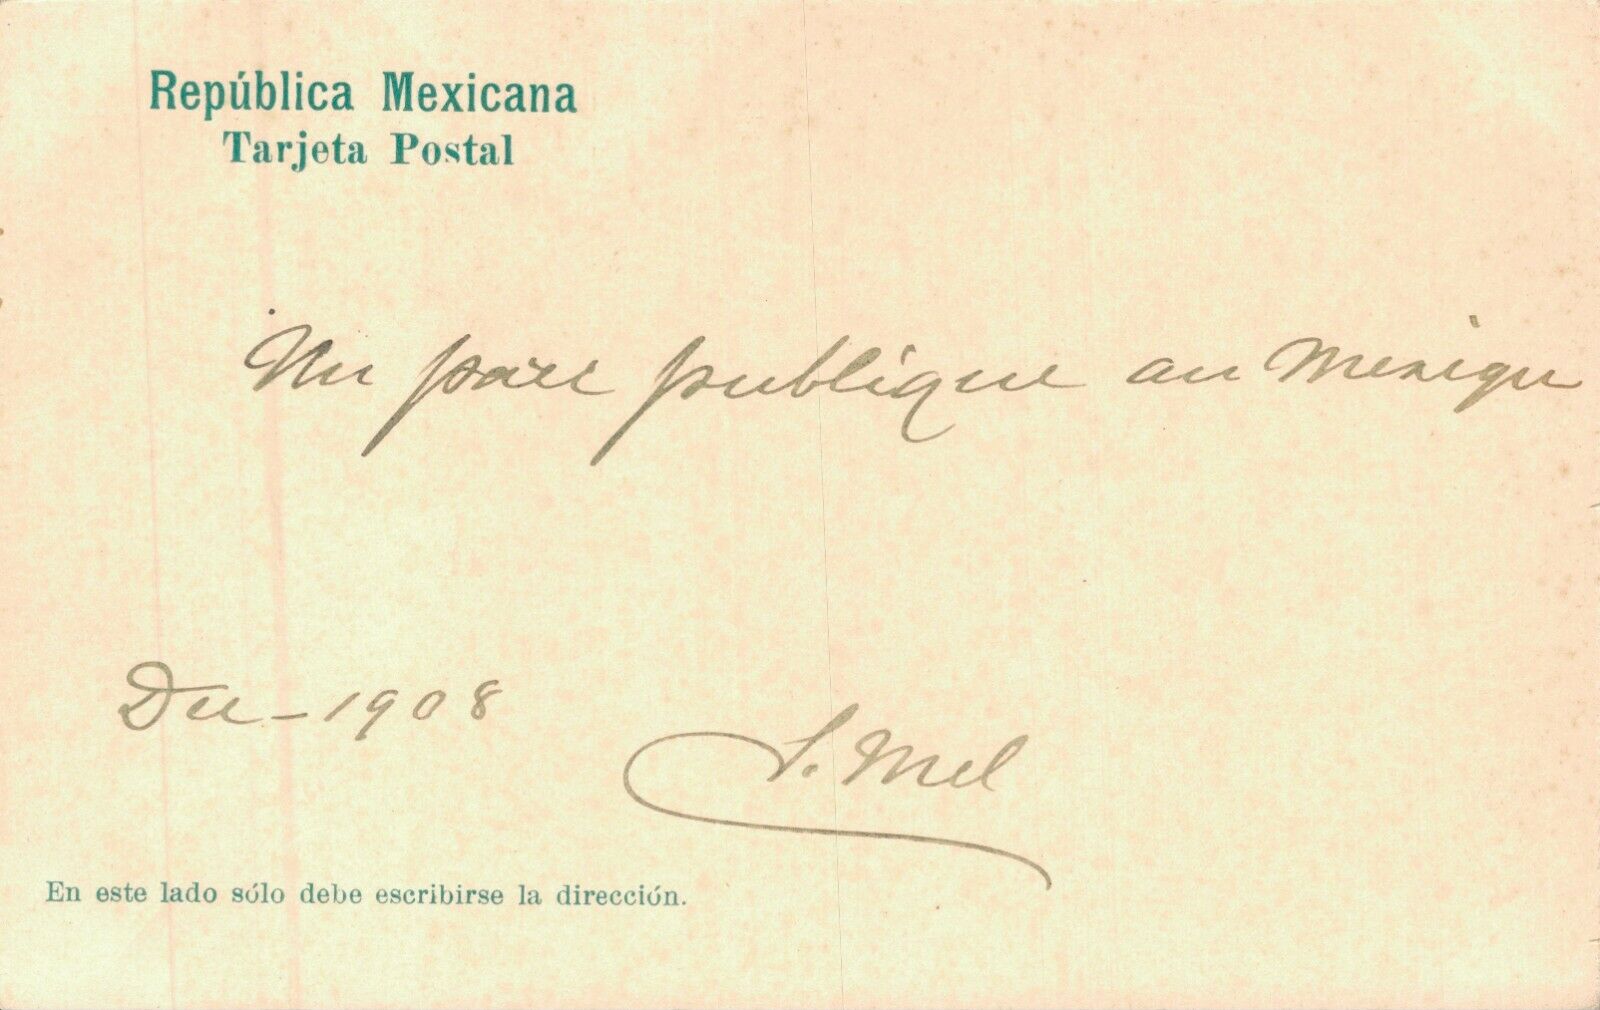 República Mexicana
Tarjeta Postal
Un parc publique au Mexique
Dec - 1908
S. Mel
En este lado sólo debe escribirse la dirección.